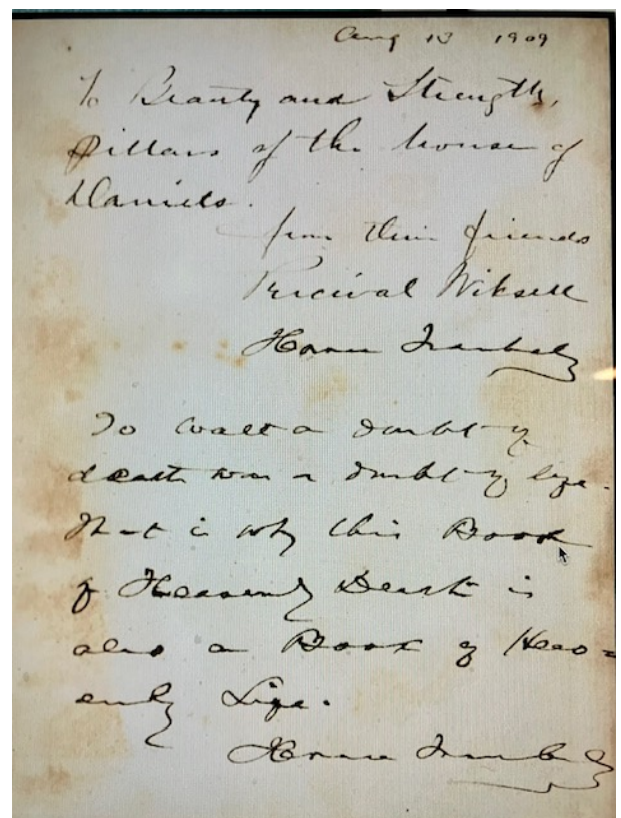 Aug 13 1909
To Beauty and Strength,
Pillars of the house of
Daniels.
from their friends
Percival Wiksell
Horace Traubel
To Walt a doubt of
death was a doubt of life.
That is why this Book
of Heavenly Death is
also a Book of Heav=
enly Life.
Horace Traubel